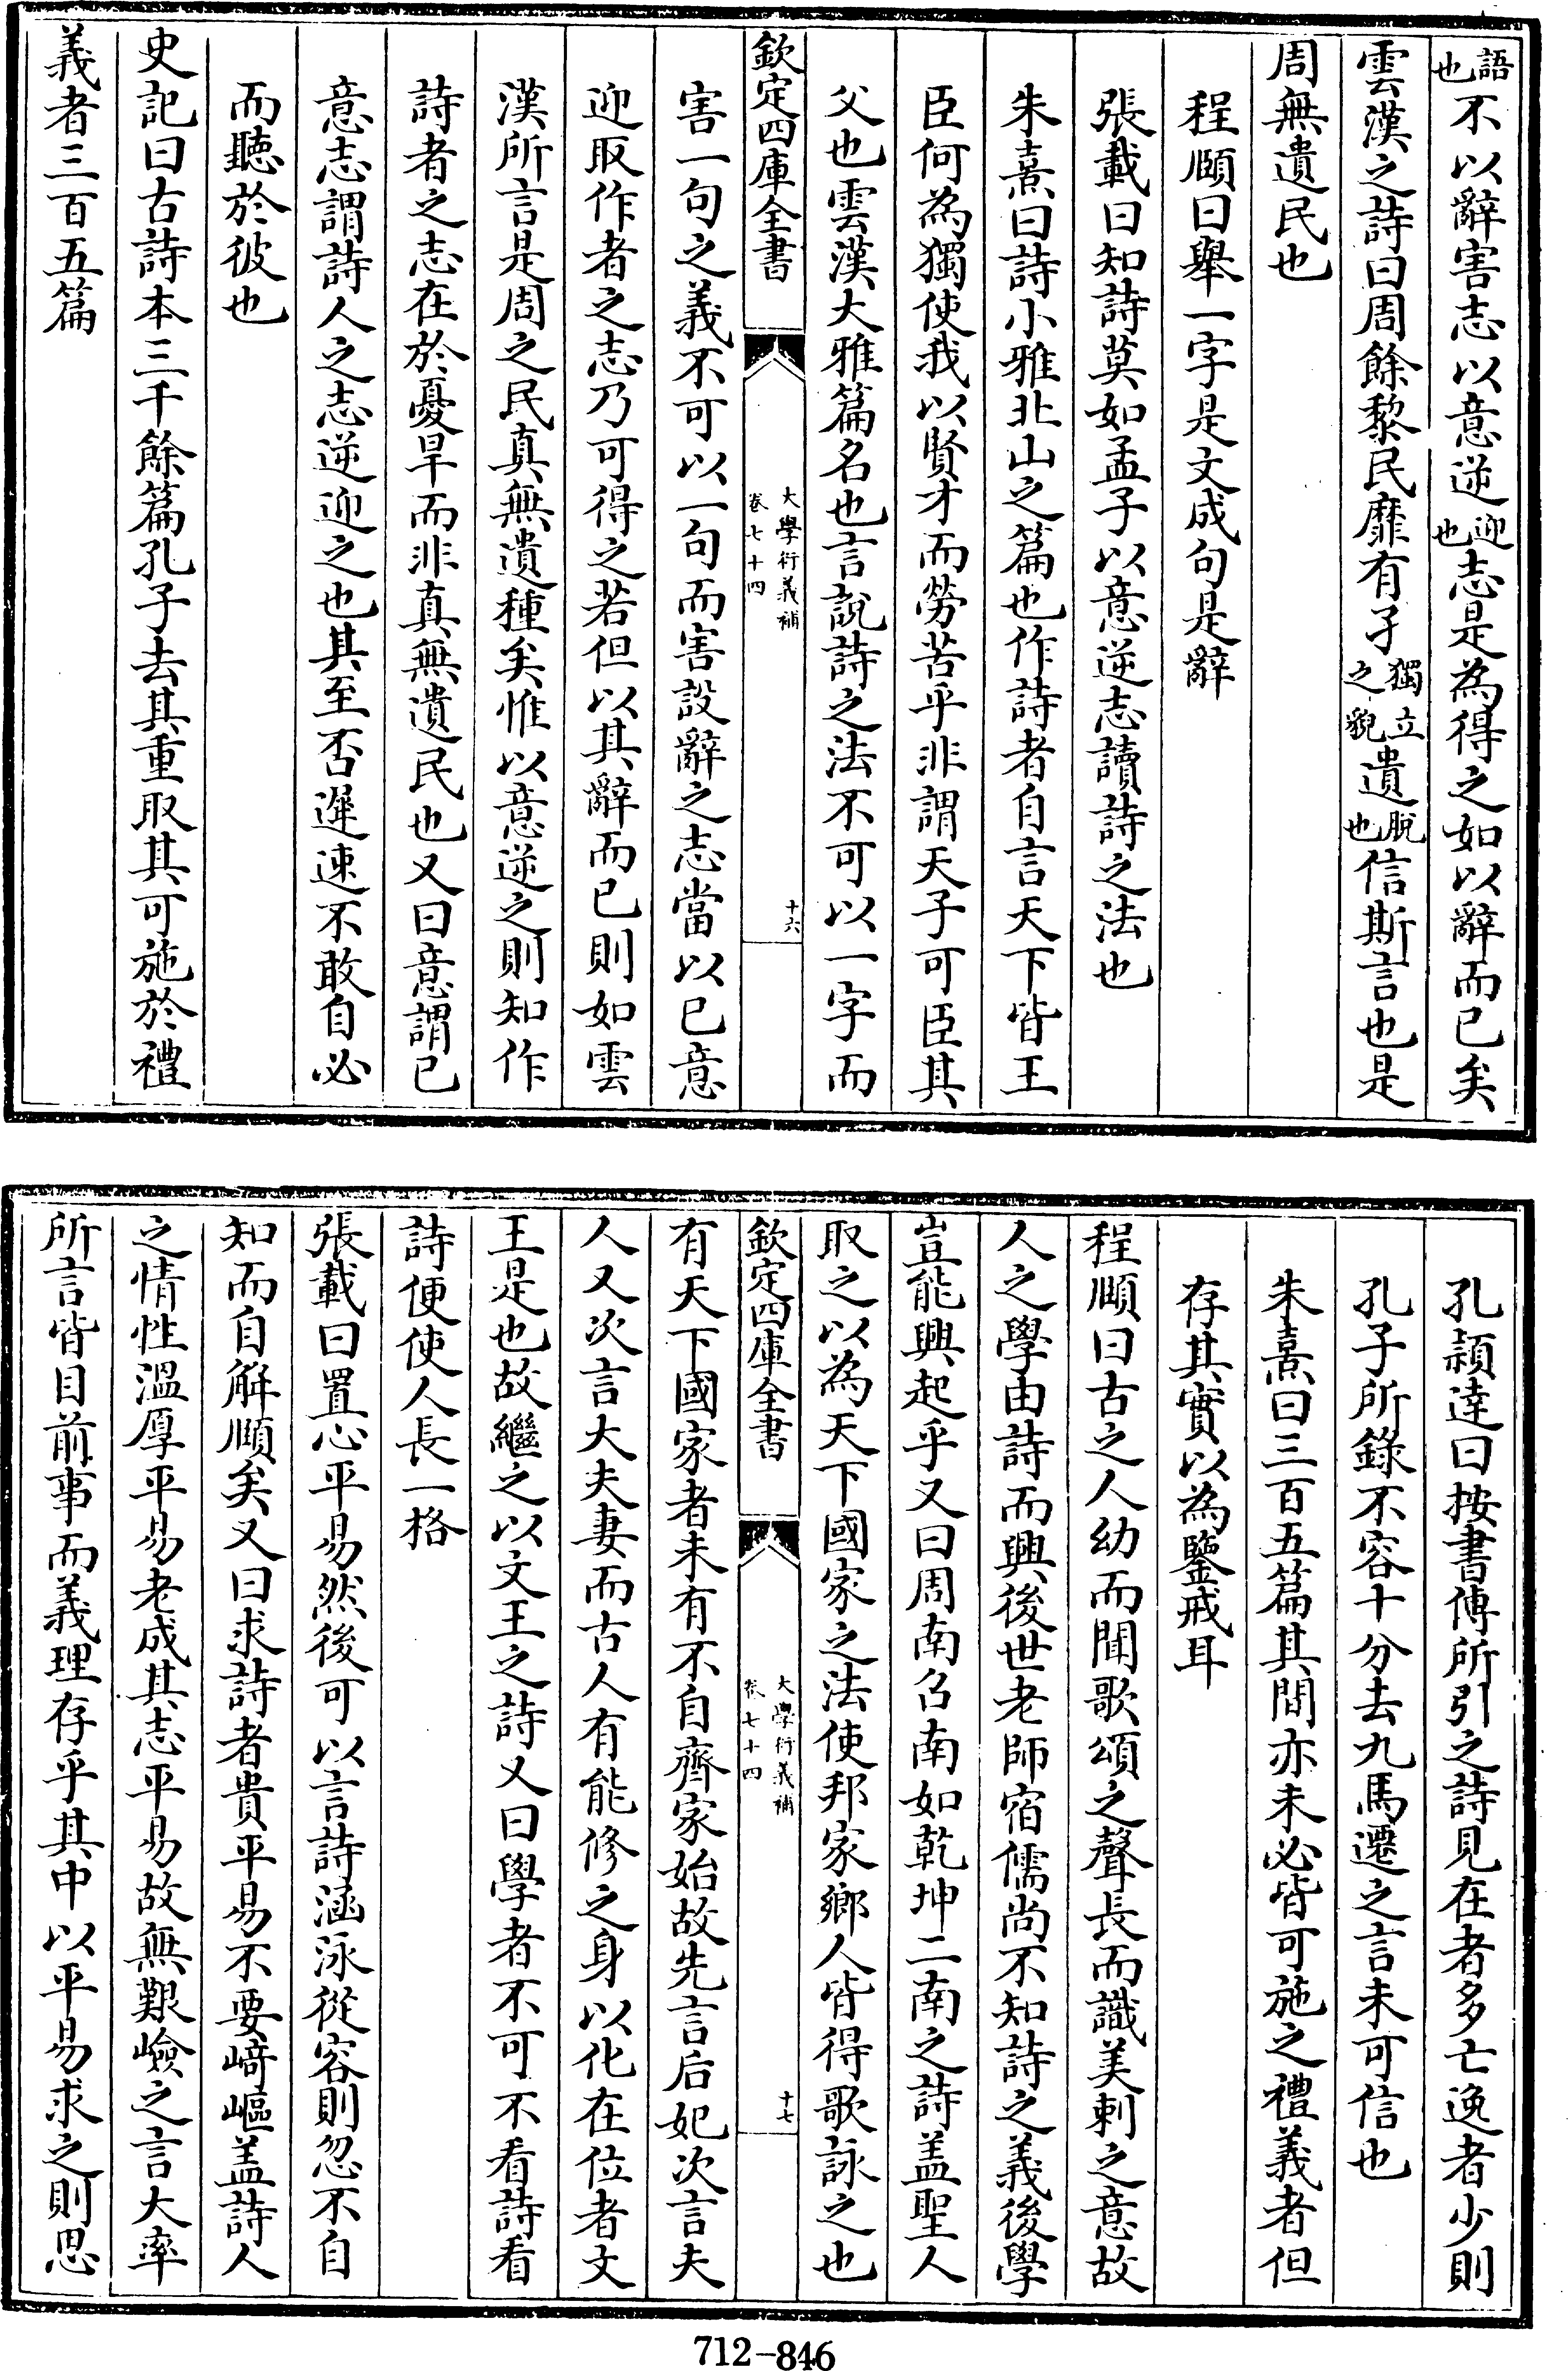 語也不以辭害志以意逆迎也志是為得之如以辭而已矣
雲漢之詩曰周餘黎民靡有孑獨立之貌遺脫也信斯言也是
周無遺民也
程頤曰舉一字是文成句是辭
張載曰知詩莫如孟子以意逆志讀詩之法也
朱熹曰詩小雅北山之篇也作詩者自言天下皆王
臣何為獨使我以賢才而勞苦乎非謂天子可臣其
父也雲漢大雅篇名也言說詩之法不可以一字而
欽定四庫全書
大學衍義補
卷七十四
十六
害一句之義不可以一句而害設辭之志當以已意
迎取作者之志乃可得之若但以其辭而已則如雲
漢所言是周之民真無遺種矣惟以意逆之則知作
詩者之志在於憂旱而非真無遺民也又曰意謂已
意志謂詩人之志逆迎之也其至否遲速不敢自必
而聽於彼也
史記曰古詩本三千餘篇孔子去其重取其可施於禮
義者三百五篇
孔潁達曰按書傳所引之詩見在者多亡逸者少則
孔子所錄不容十分去九馬遷之言未可信也
朱熹曰三百五篇其間亦未必皆可施之禮義者但
存其實以為鑒戒耳
程頤曰古之人幼而聞歌頌之聲長而識美刺之意故
人之學由詩而興後世老師宿儒尚不知詩之義後學
豈能興起乎又曰周南召南如乾坤二南之詩盖聖人
取之以為天下國家之法使邦家鄉人皆得歌詠之也
欽定四庫全書
大學衍義補
卷七十四
十七
有天下國家者未有不自齊家始故先言后妃次言夫
人又次言大夫妻而古人有能修之身以化在位者文
王是也故繼之以文王之詩又曰學者不可不看詩看
詩便使人長一格
張載曰置心平易然後可以言詩涵泳從容則忽不自
知而自解頤矣又曰求詩者貴平易不要崎嶇盖詩人
之情性溫厚平易老成其志平易故無艱嶮之言大率
所言皆目前事而義理存乎其中以平易求之則思
712-846